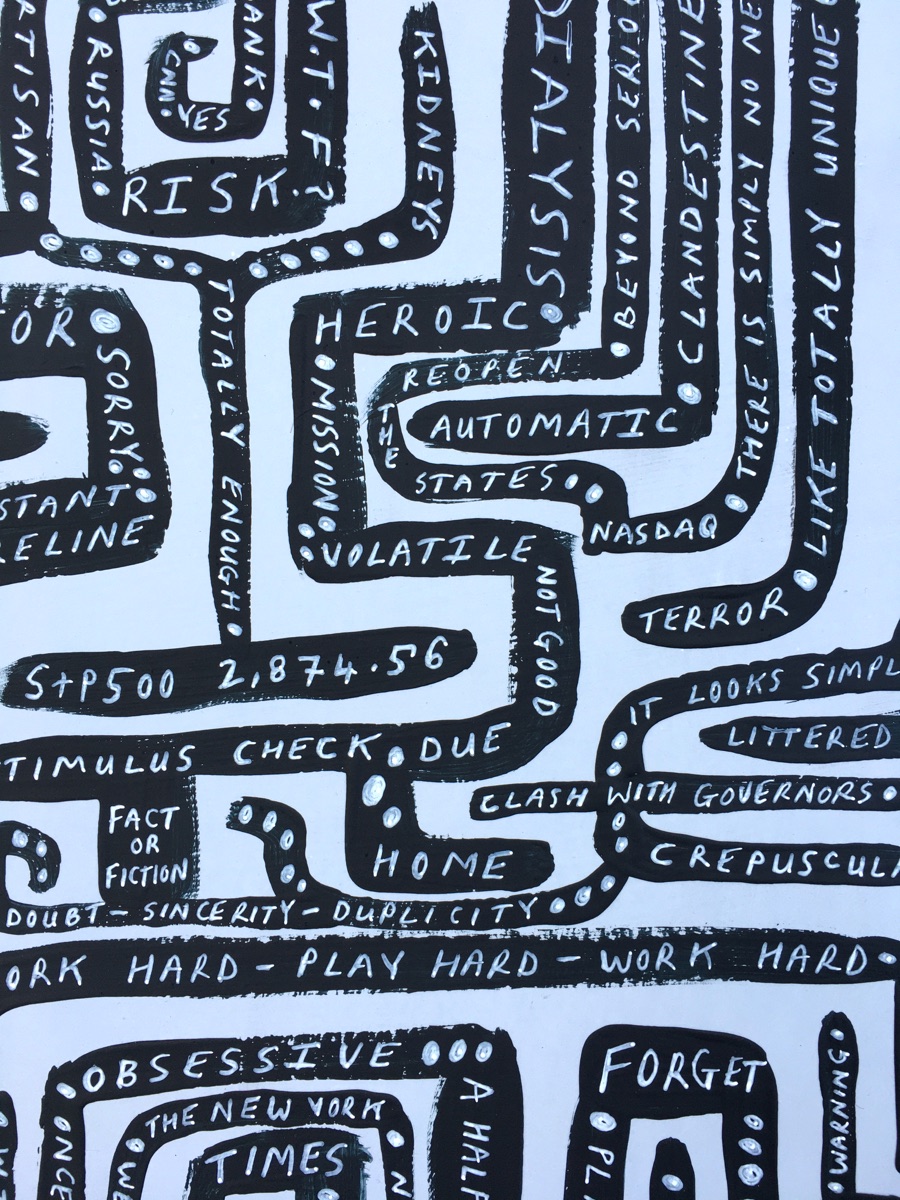 RTISAN
RUSSIA
CNN
YES
ANK
RISK
W.T.F?
KIDNEYS
DIALYSIS
BEYOND SERIOU
CLANDESTINE
THERE IS SIMPLY NO NE
LIKE TOTALLY UNIQUE
TOTALLY ENOUGH
HEROIC
MISSION
REOPEN
THE
AUTOMATIC
STATES
NASDAQ
TERROR
OR
SORRY
STANT
RELINE
VOLATILE
NOT GOOD
S+P500 2,874.56
TIMULUS CHECK. DUE
IT LOOKS SIMPL
LITTERED
CLASH WITH GOVERNORS
CREPUSCULA
FACT
OR
FICTION
HOME
DOUBT - SINCERITY - DUPLICITY
ORK HARD - PLAY HARD - WORK HARD
OBSESSIVE
A HALF
ONCE
THE NEW YORK
TIMES
WE
N
FORGET
PL
WARNING